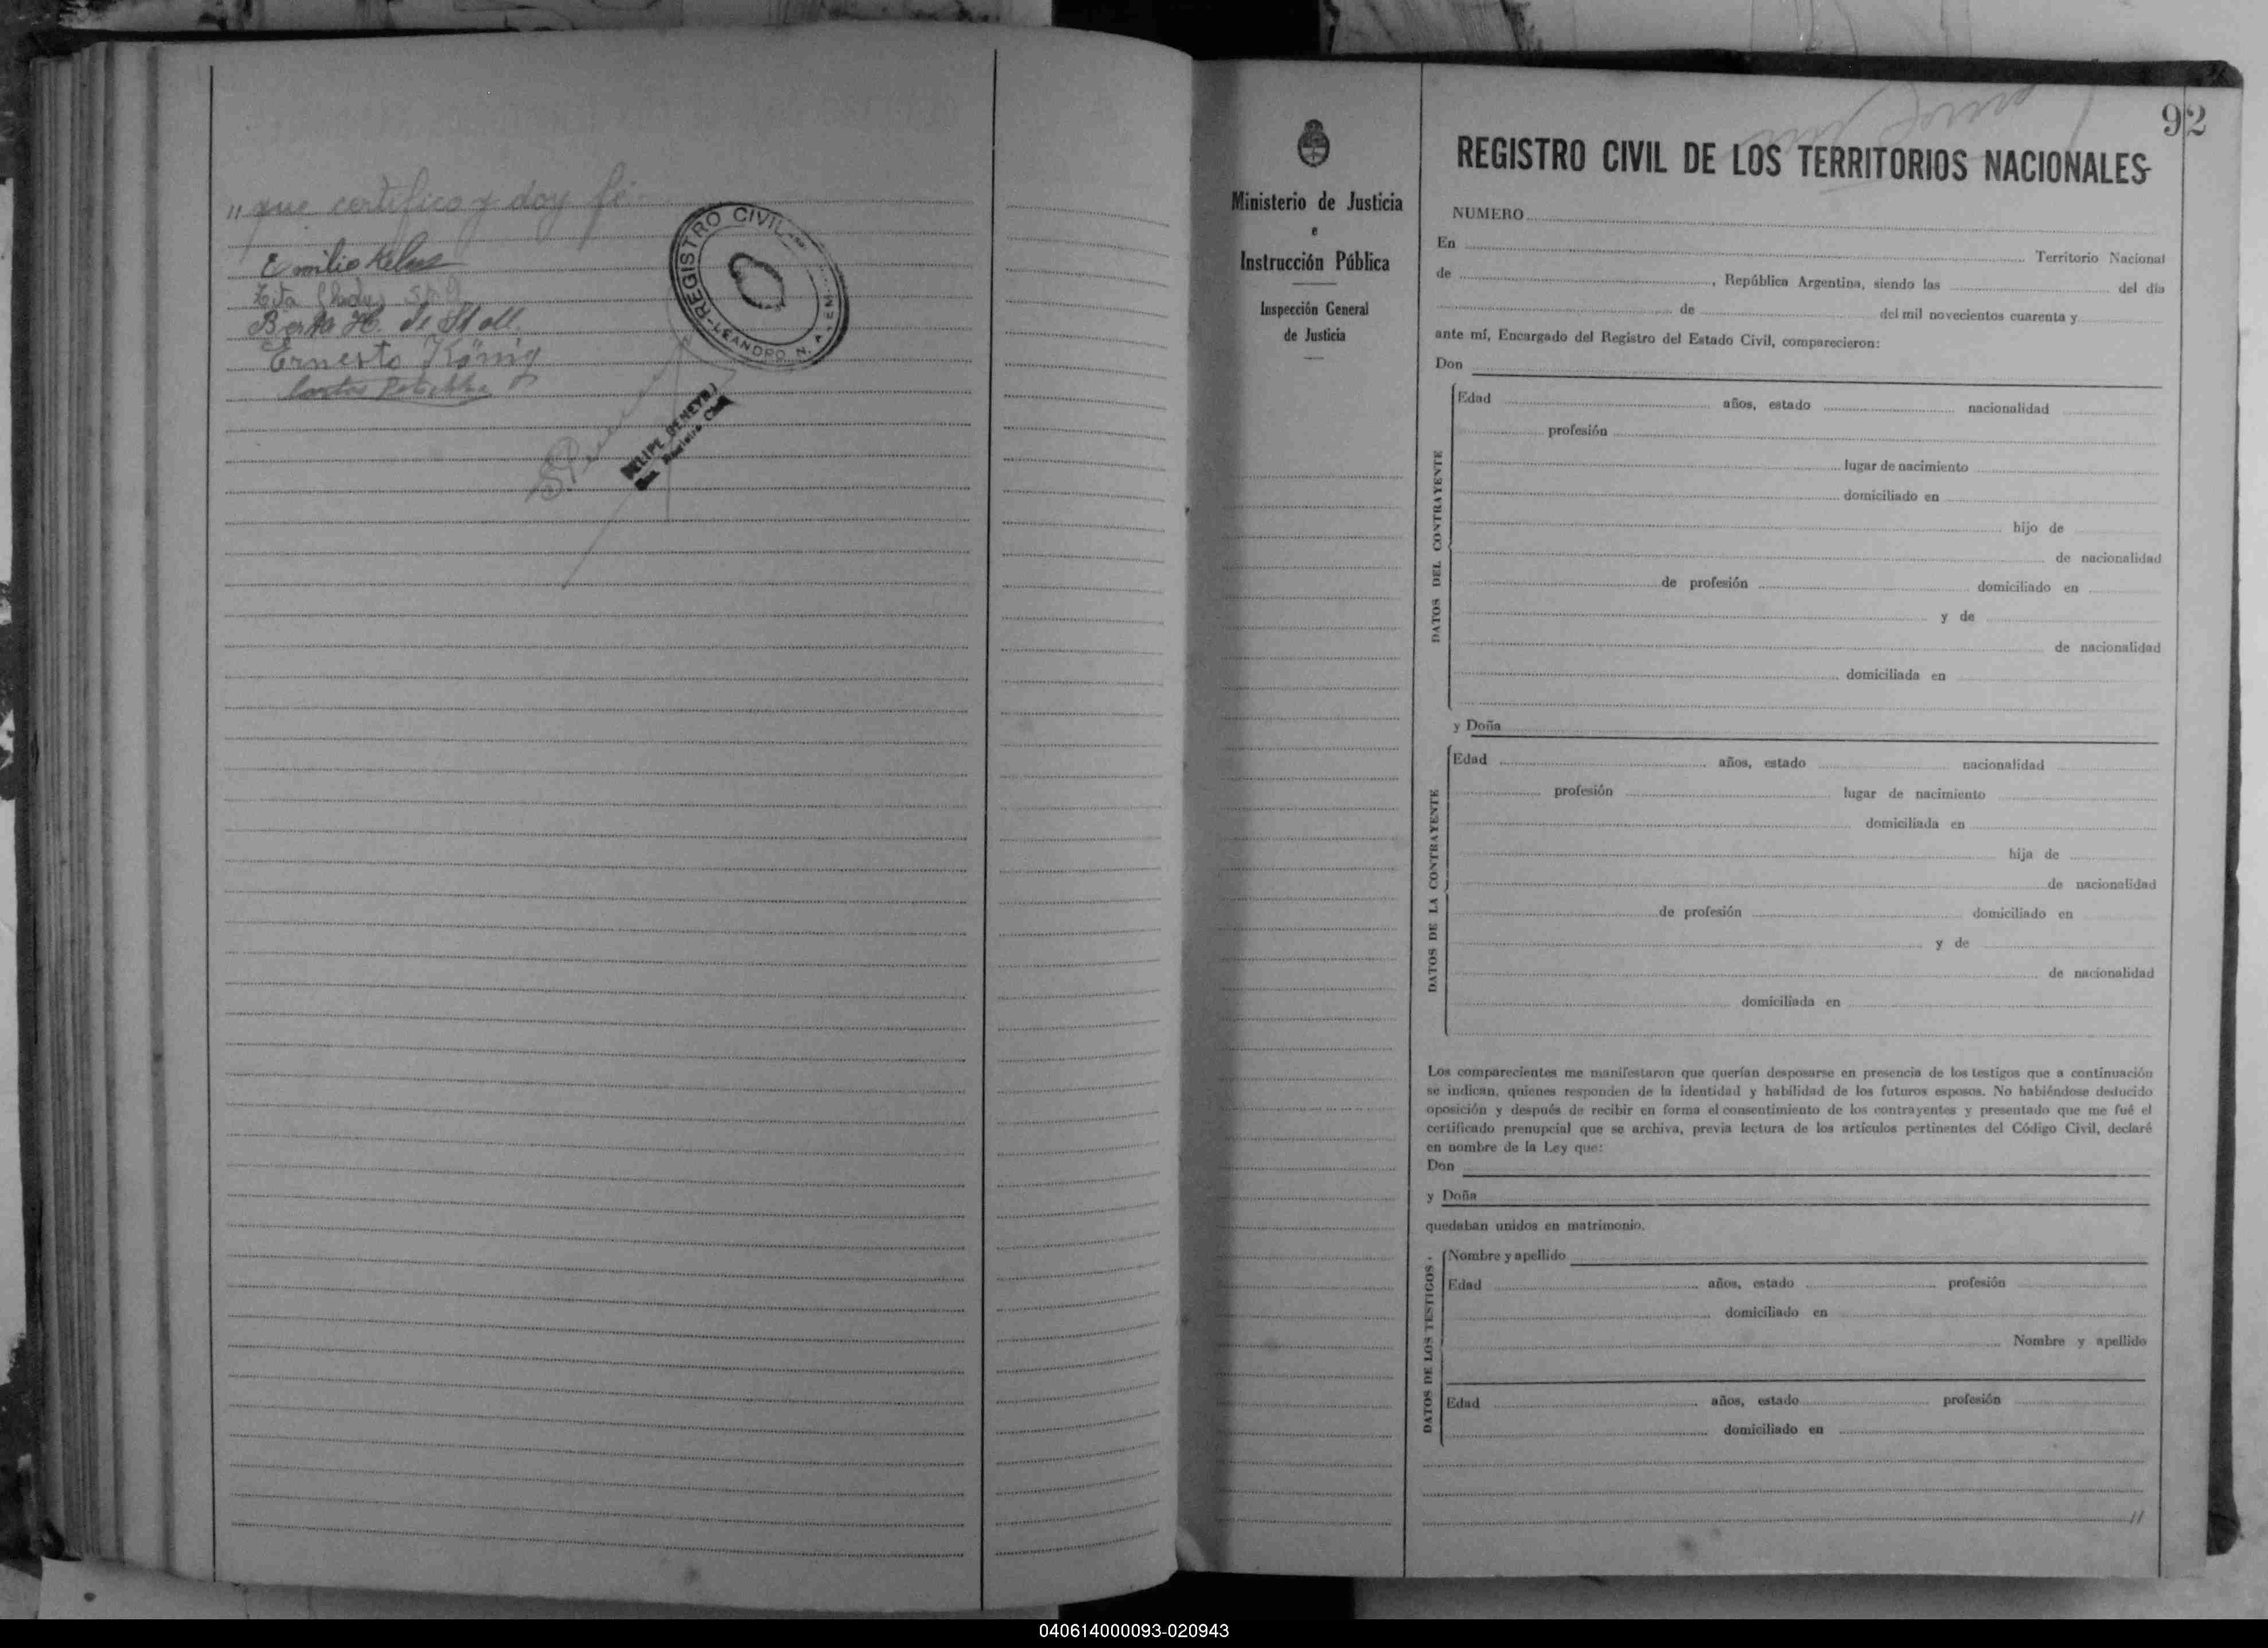 " que certifico y doy fé
Emilio
Zita
Berta H. de Stoll
Ernesto König
REGISTRO CIVIL
LEANDRO N. ALEM
FELIPE
Registro Civil
92
Ministerio de Justicia
e
Instrucción Pública
Inspección General
de Justicia
REGISTRO CIVIL DE LOS TERRITORIOS NACIONALES
NUMERO
En Territorio Nacional
de , República Argentina, siendo las del día
de del mil novecientos cuarenta y
ante mí, Encargado del Registro del Estado Civil, comparecieron:
Don
DATOS DEL CONTRAYENTE
Edad años, estado nacionalidad
profesión
lugar de nacimiento
domiciliado en
hijo de
de nacionalidad
de profesión domiciliado en
y de
de nacionalidad
domiciliada en
y Doña
DATOS DE LA CONTRAYENTE
Edad años, estado nacionalidad
profesión lugar de nacimiento
domiciliada en
hija de
de nacionalidad
de profesión domiciliado en
y de
de nacionalidad
domiciliada en
Los comparecientes me manifestaron que querían desposarse en presencia de los testigos que a continuación
se indican, quienes responden de la identidad y habilidad de los futuros esposos. No habiéndose deducido
oposición y después de recibir en forma el consentimiento de los contrayentes y presentado que me fué el
certificado prenupcial que se archiva, previa lectura de los artículos pertinentes del Código Civil, declaré
en nombre de la Ley que:
Don
y Doña
quedaban unidos en matrimonio.
DATOS DE LOS TESTIGOS
Nombre y apellido
Edad años, estado profesión
domiciliado en
Nombre y apellido
Edad años, estado profesión
domiciliado en
"
040614000093-020943